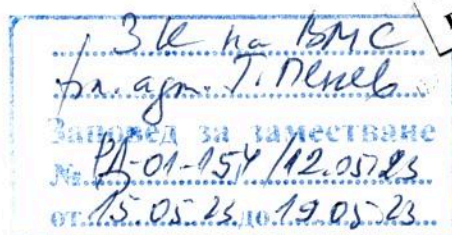 ЗК на ВМС
фл. адм. Г. Пенев
Заповед за заместване
№ РД-01-154/12.05.23
от 15.05.23 до 19.05.23